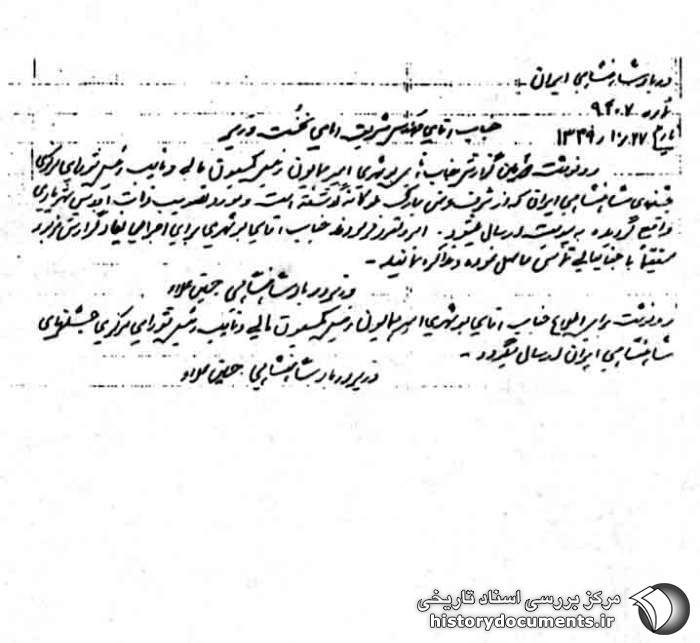 دربار شاهنشاهی ایران
شماره ۹۴۰۷
تاریخ ۱۳۳۹/۱۰/۲۷
جناب آقای مهندس شریف امامی نخست وزیر
رونوشت گزارش جناب آقای بوشهری امیر همایون رئیس کمیسیون مالی و نایب رئیس شورای مرکزی
جشنهای شاهنشاهی ایران که از شرف عرض مبارک ملوکانه گذشته است و مورد تصویب ذات اقدس شهریاری
واقع گردیده به پیوست ارسال میشود. امر و مقرر فرمودند جناب آقای بوشهری برای اجرای مفاد گزارش مزبور
مستقیماً با جنابعالی تماس حاصل نموده و مذاکره نمایند.
وزیر دربار شاهنشاهی حسین علاء
رونوشت برابر اطلاع جناب آقای بوشهری امیر همایون رئیس کمیسیون مالی و نایب رئیس شورای مرکزی جشنهای
شاهنشاهی ایران ارسال میگردد.
وزیر دربار شاهنشاهی حسین علاء
مرکز بررسی اسناد تاریخی
historydocuments.ir